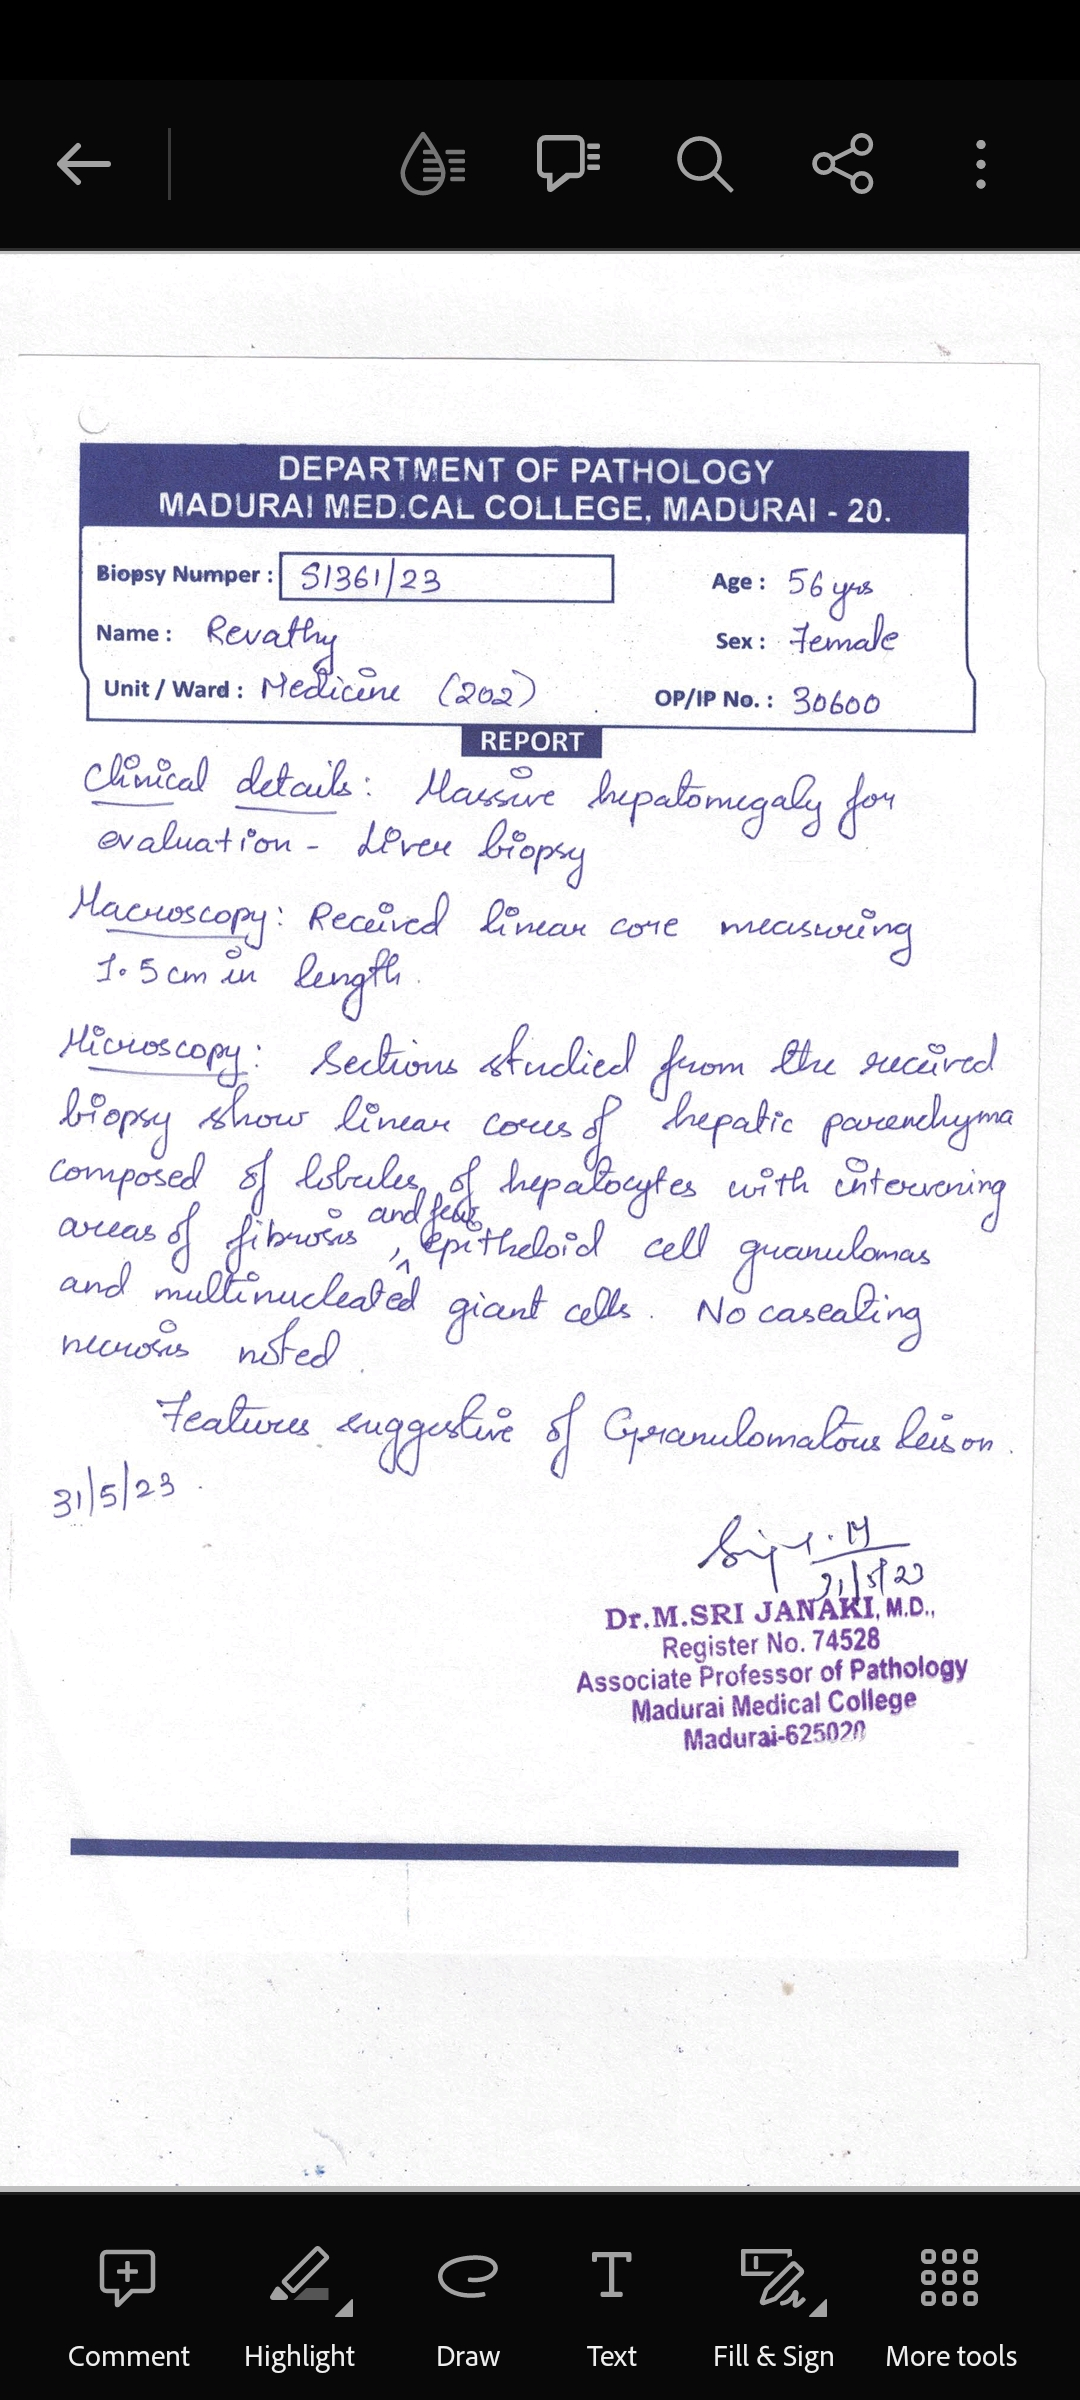 DEPARTMENT OF PATHOLOGY
MADURAI MED.CAL COLLEGE, MADURAI - 20.
Biopsy Numper : S1361/23
Age : 56 yrs
Name : Revathy
Sex : Female
Unit / Ward : Medicine (202)
OP/IP No. : 30600
REPORT
Clinical details : Massive hepatomegaly for
evaluation - Liver biopsy
Macroscopy : Received linear core measuring
1.5 cm in length.
Microscopy : Sections studied from the received
biopsy show linear cores of hepatic parenchyma
composed of lobules of hepatocytes with intervening
areas of fibrosis, and few epitheloid cell granulomas
and multinucleated giant cells. No caseating
necrosis noted.
Features suggestive of Granulomatous leison.
31/5/23.
31/5/23
Dr.M.SRI JANAKI, M.D.,
Register No. 74528
Associate Professor of Pathology
Madurai Medical College
Madurai-625020
Comment
Highlight
Draw
Text
Fill & Sign
More tools